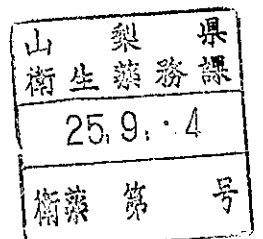 山梨県
衛生薬務課
25.9.-4
衛薬第 号